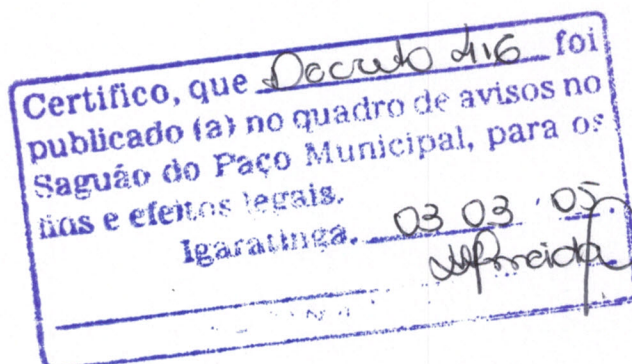 Certifico, que Decreto 416 foi
publicado (a) no quadro de avisos no
Saguão do Paço Municipal, para os
fins e efeitos legais.
Igaratinga, 03 03 05